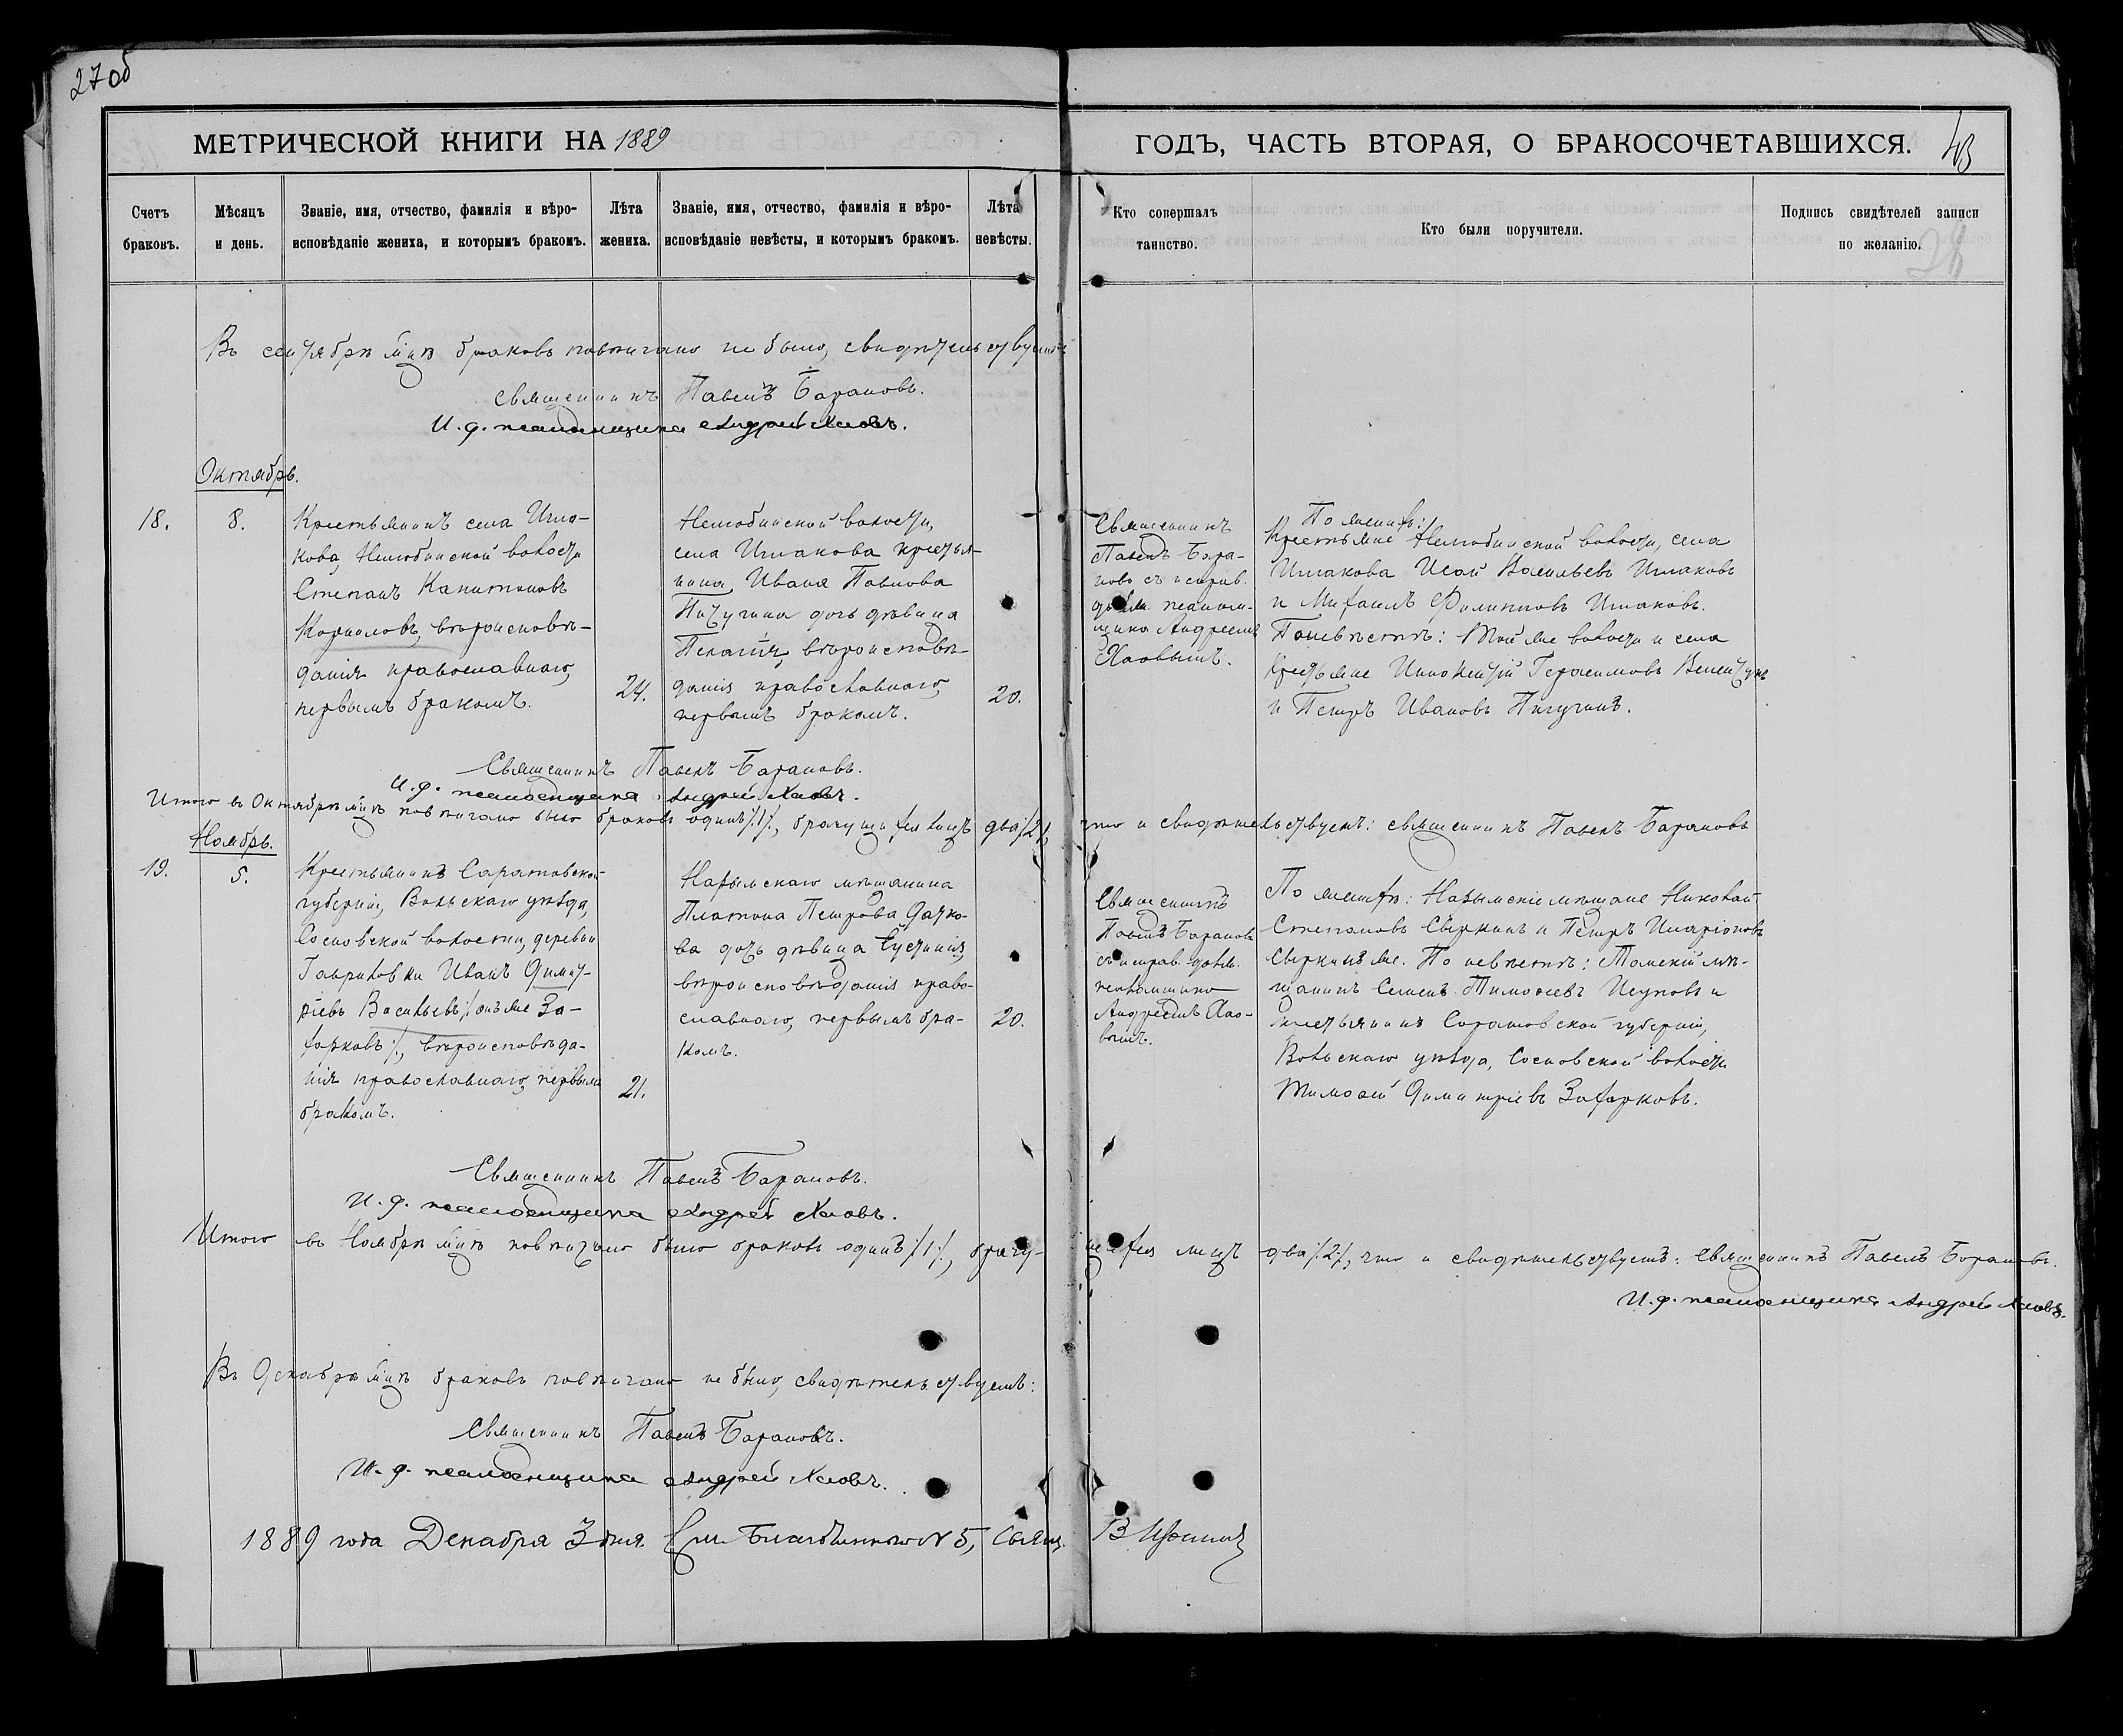 27 об
МЕТРИЧЕСКОЙ КНИГИ НА 1889
ГОДЪ, ЧАСТЬ ВТОРАЯ, О БРАКОСОЧЕТАВШИХСЯ.
28
Счетъ браковъ.
Мѣсяцъ и день.
Званіе, имя, отчество, фамилія и вѣро-
исповѣданіе жениха, и которымъ бракомъ.
Лѣта жениха.
Званіе, имя, отчество, фамилія и вѣро-
исповѣданіе невѣсты, и которымъ бракомъ.
Лѣта невѣсты.
Кто совершалъ таинство.
Кто были поручители.
Подпись свидѣтелей записи по желанію.
Въ сентябрѣ м̃цѣ браковъ повѣнчано не было, свидѣтельствуютъ
Священникъ Павелъ Барановъ.
И. д. псаломщика Андрей Хаовъ.
Октябрь.
18.
8.
Крестьянинъ села
Нелюбинской волости
Степанъ Капитоновъ
Корниловъ, вѣроисповѣ-
данія православнаго,
первымъ бракомъ.
24.
Нелюбинской волости,
села Ишакова крестья-
нина Ивана Павлова
Пичугина дочь дѣвица
Пелагія, вѣроисповѣ-
данія православнаго,
первымъ бракомъ.
20.
Священникъ
Павелъ Бара-
новъ съ исправ.
должн. псалом-
щика Андреемъ
Хаовымъ.
По женихѣ:
Крестьяне Нелюбинской волости, села
Ишакова Исай Васильевъ Ишаковъ
и Михаилъ Филипповъ Ишаковъ.
По невѣстѣ: Той же волости и села
крестьяне Иннокентій Герасимовъ
и Петръ Ивановъ Пичугинъ.
Священникъ Павелъ Барановъ.
И. д. псаломщика Андрей Хаовъ.
Итого въ Октябрѣ м̃цѣ повѣнчано было браковъ одинъ /.1/., брачущихся лицъ два /.2/.
что и свидѣтельствуетъ: священникъ Павелъ Барановъ
Ноябрь.
19.
5.
Крестьянинъ Саратовской
губерніи, Вольскаго уѣзда,
Сосновской волости, деревни
Гавриловки Иванъ Димит-
ріевъ Васильевъ /. онъ же За-
харковъ /., вѣроисповѣда-
нія православнаго, первымъ
бракомъ.
21.
Нарымскаго мѣщанина
Платона Петрова
дочь дѣвица Іустинія,
вѣроисповѣданія право-
славнаго, первымъ бра-
комъ.
20.
Священникъ
Павелъ Барановъ
съ исправ. должн.
псаломщика
Андреемъ Хао-
вымъ.
По женихѣ: Нарымскіе мѣщане Николай
Степановъ Сыркинъ и Петръ Иларіоновъ
Сыркинъ же. По невѣстѣ: Томскій мѣ-
щанинъ Семенъ Тимоѳеевъ Исуповъ и
крестьянинъ Саратовской губерніи,
Вольскаго уѣзда, Сосновской волости
Тимоѳей Димитріевъ Захарковъ.
Священникъ Павелъ Барановъ.
И. д. псаломщика Андрей Хаовъ.
Итого въ Ноябрѣ м̃цѣ повѣнчано было браковъ одинъ /.1/., брачу-
щихся лицъ два /.2/., что и свидѣтельствуетъ: священникъ Павелъ Барановъ.
И. д. псаломщика Андрей Хаовъ.
Въ Декабрѣ м̃цѣ браковъ повѣнчано не было, свидѣтельствуетъ:
Священникъ Павелъ Барановъ.
И. д. псаломщика Андрей Хаовъ.
1889 года Декабря 3 дня № 5, Свящ.